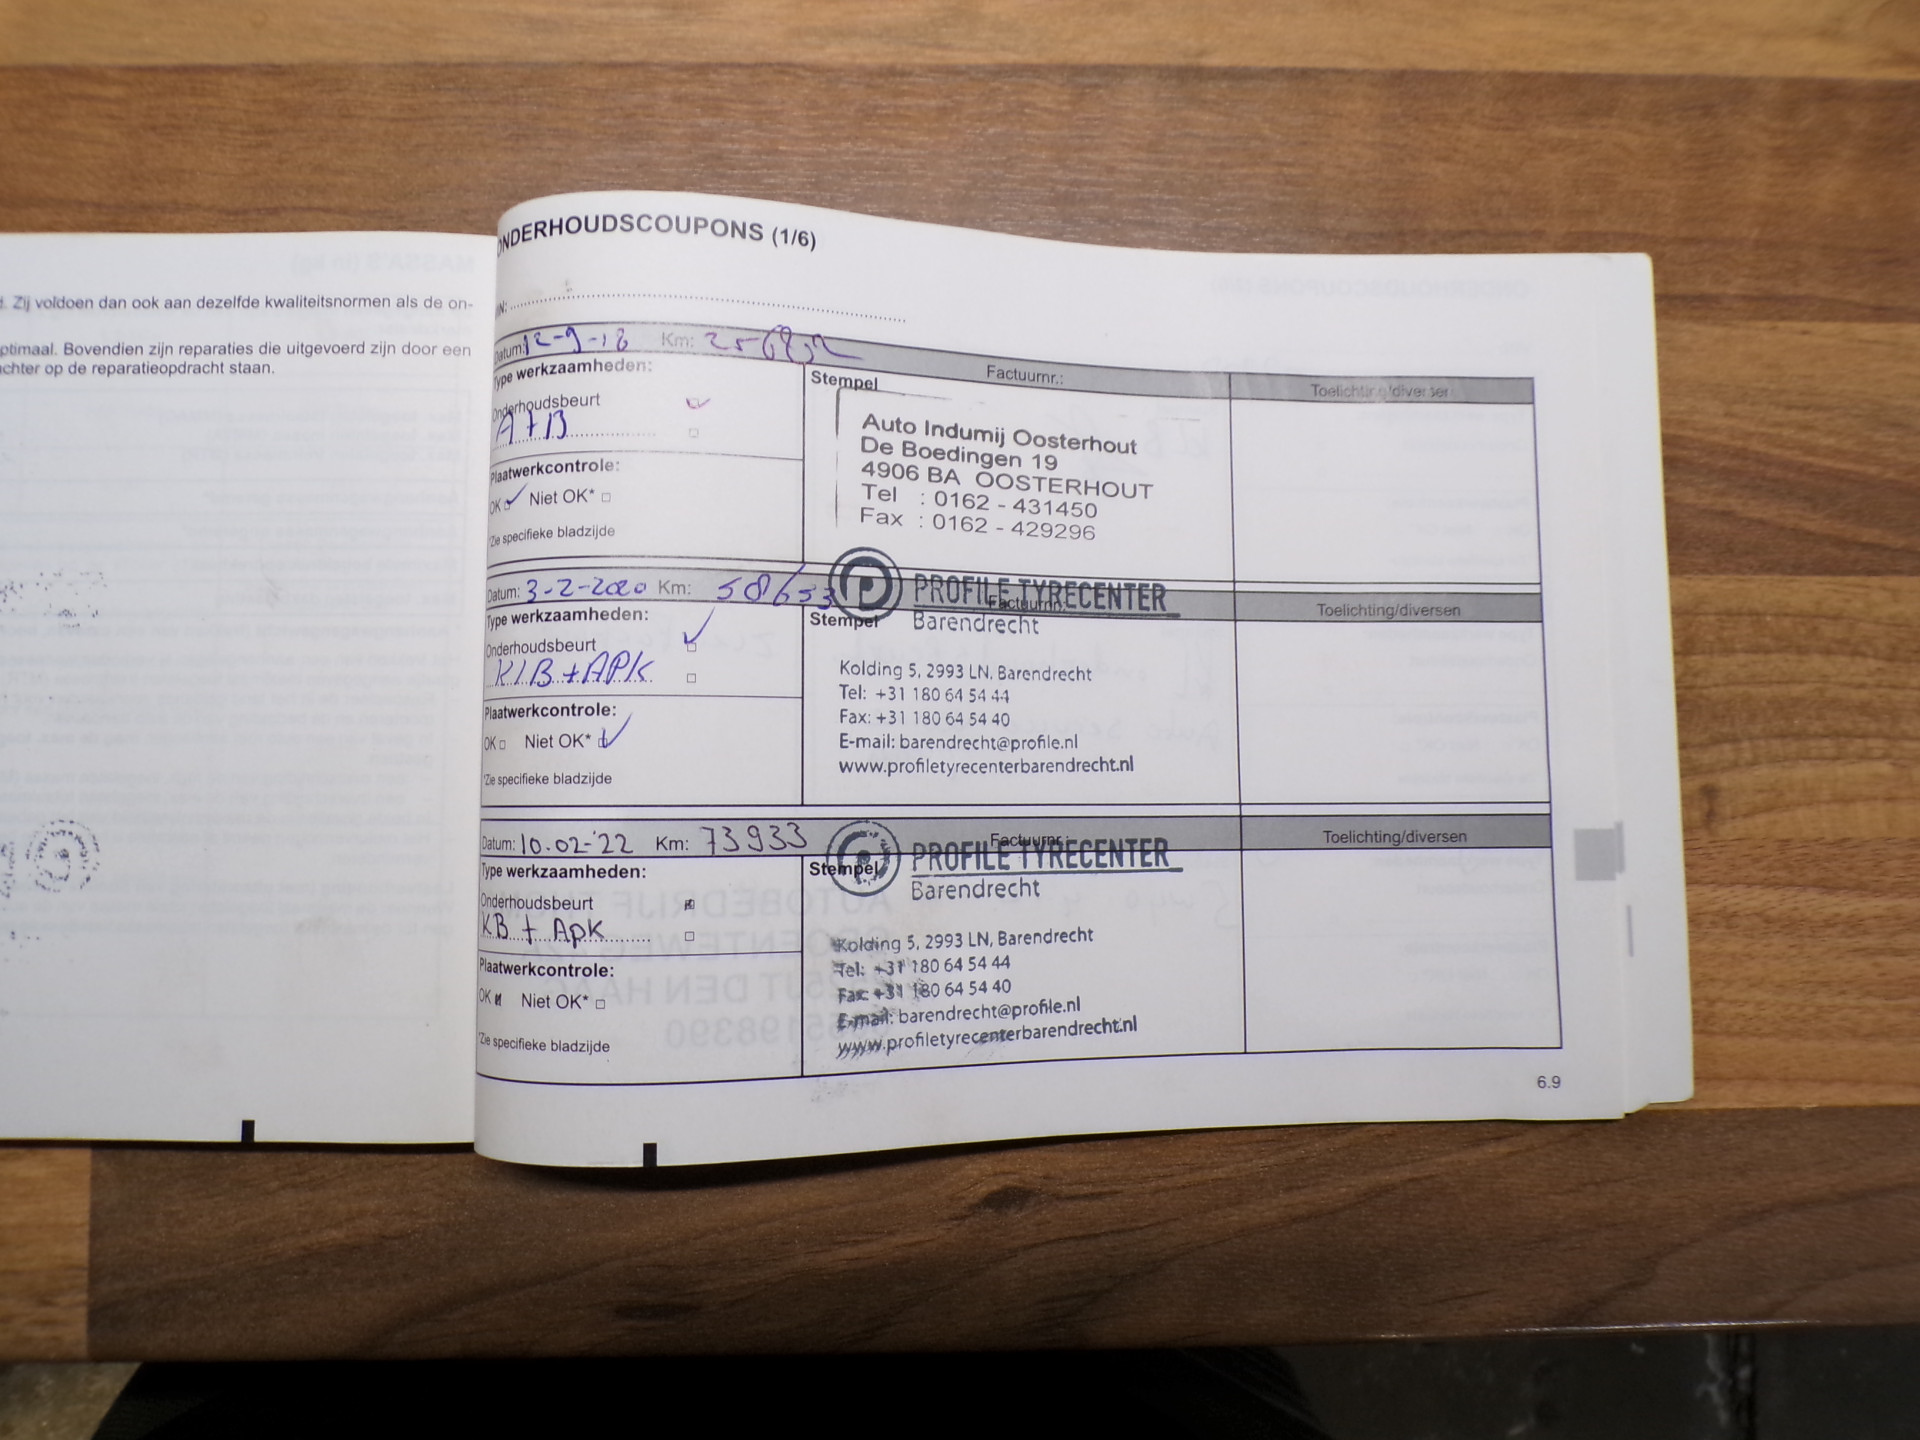 . Zij voldoen dan ook aan dezelfde kwaliteitsnormen als de on-
ptimaal. Bovendien zijn reparaties die uitgevoerd zijn door een
achter op de reparatieopdracht staan.
ONDERHOUDSCOUPONS (1/6)
Datum: 12-9-18 Km: Factuurnr.: Toelichting/diversen
Type werkzaamheden:
Stempel
Onderhoudsbeurt
A+B
Plaatwerkcontrole:
OK Niet OK*
*Zie specifieke bladzijde
Auto Indumij Oosterhout
De Boedingen 19
4906 BA OOSTERHOUT
Tel : 0162 - 431450
Fax : 0162 - 429296
Datum: 3-2-2020 Km: 58653 Factuurnr.: Toelichting/diversen
Type werkzaamheden:
Stempel
Onderhoudsbeurt
KLB+APK
Plaatwerkcontrole:
OK Niet OK*
*Zie specifieke bladzijde
PROFILE TYRECENTER
Barendrecht
Kolding 5, 2993 LN, Barendrecht
Tel: +31 180 64 54 44
Fax: +31 180 64 54 40
E-mail: barendrecht@profile.nl
www.profiletyrecenterbarendrecht.nl
Datum: 10.02-'22 Km: 73933 Factuurnr.: Toelichting/diversen
Type werkzaamheden:
Stempel
Onderhoudsbeurt
KB + Apk
Plaatwerkcontrole:
OK Niet OK*
*Zie specifieke bladzijde
PROFILE TYRECENTER
Barendrecht
Kolding 5, 2993 LN, Barendrecht
Tel: +31 180 64 54 44
Fax: +31 180 64 54 40
E-mail: barendrecht@profile.nl
www.profiletyrecenterbarendrecht.nl
6.9